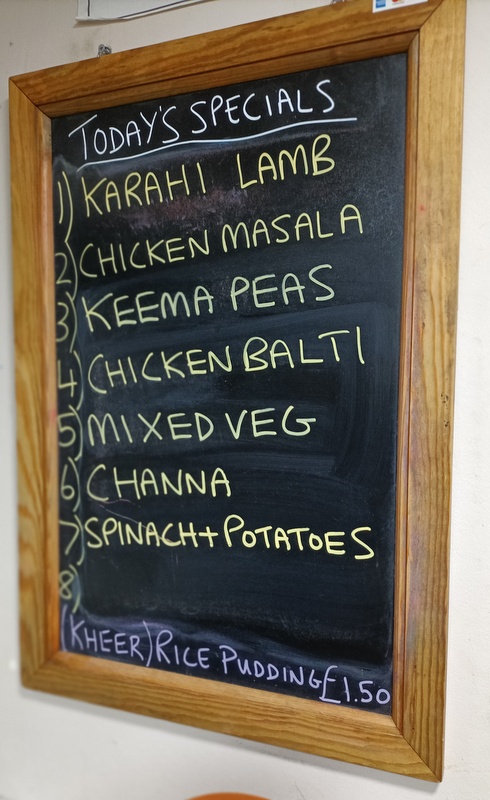 TODAY'S SPECIALS
1) KARAHI LAMB
2) CHICKEN MASALA
3) KEEMA PEAS
4) CHICKEN BALTI
5) MIXED VEG
6) CHANNA
7) SPINACH + POTATOES
8)
(KHEER) RICE PUDDING £1.50